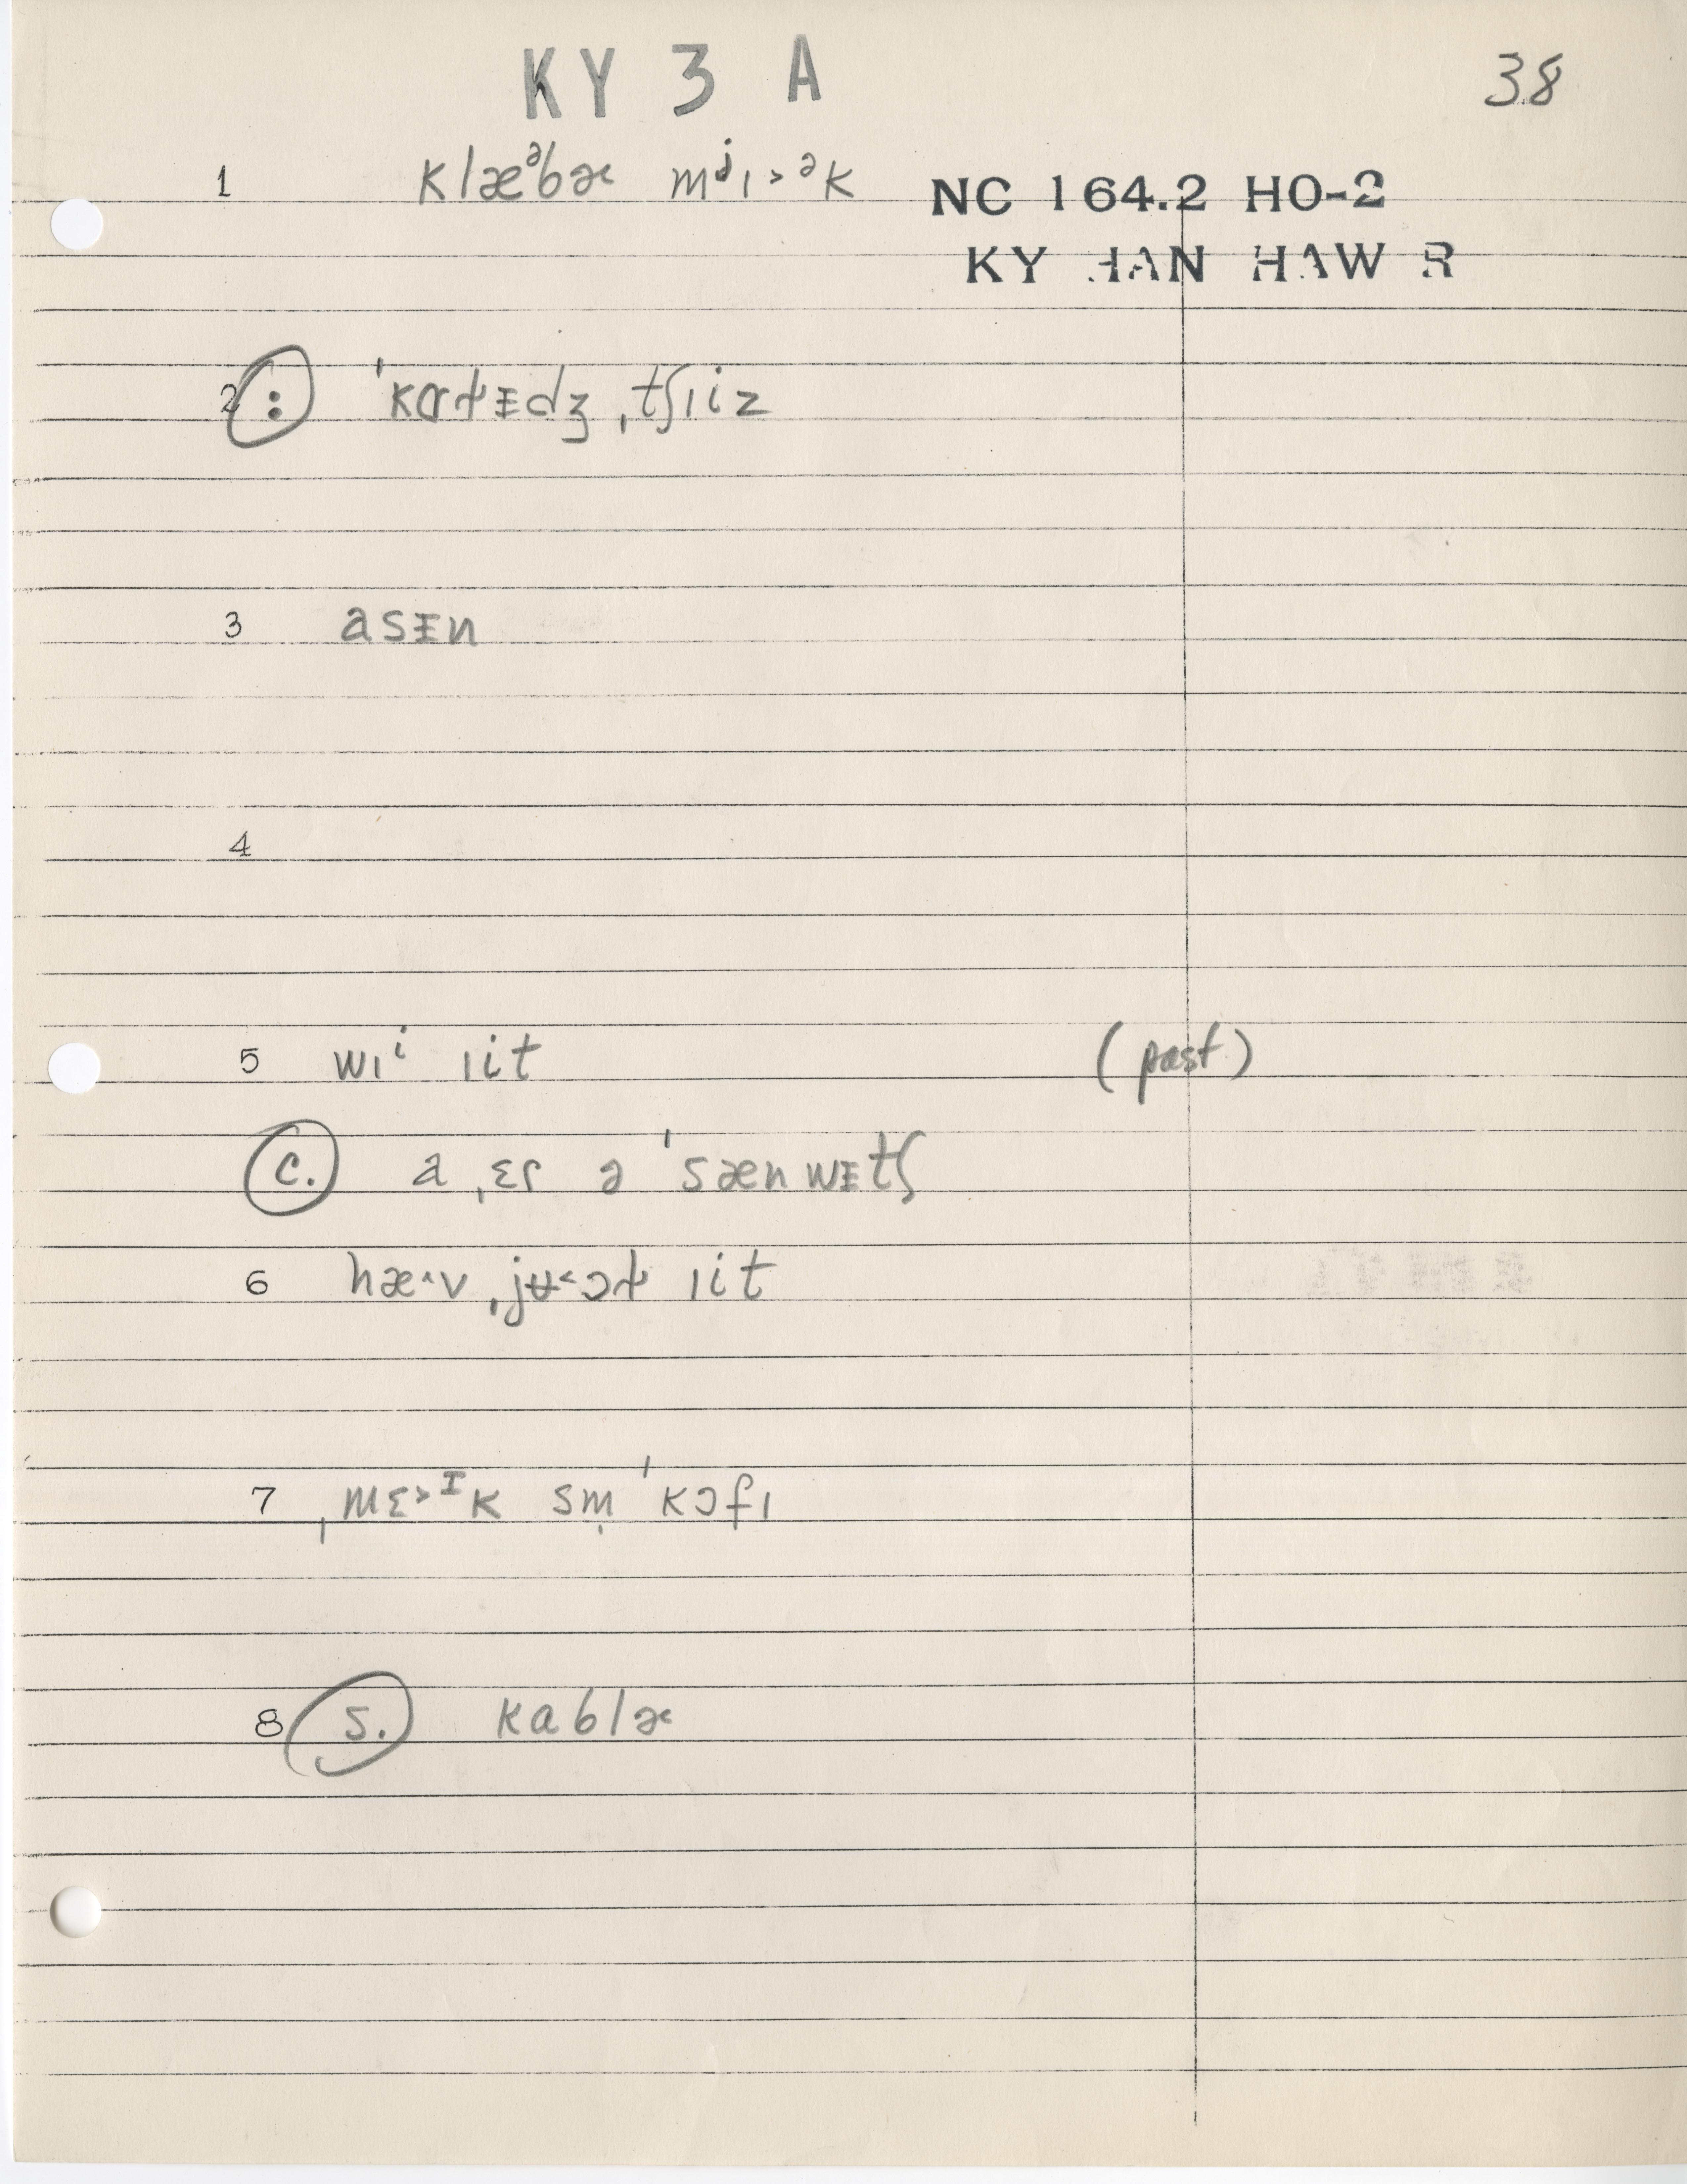 KY 3 A
38
1 klæᵊbɚ mʲɪ˃ᵊk
NC 164.2 HO-2
KY HAN HAW R
2 : ˈkɑɫᵻdʒ ˌtʃɪiz
3 asᵻn
4
5 wɪⁱ ɪit (past)
c. a ˌɛɾ ə ˈsænwᵻtʃ
6 hæ˄v ˌjʉ˂ɔɫ ɪit
7 ˌmɛ˃ᶦk sm̩ ˈkɔfɪ
8 s. kablɚ